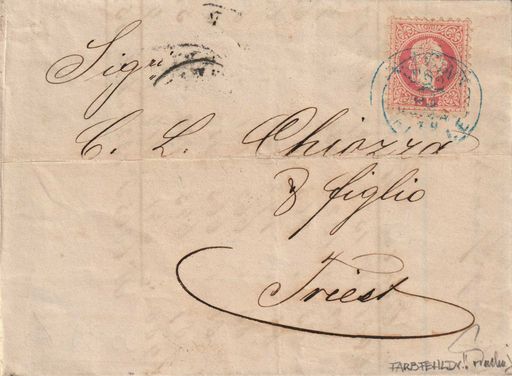 Sigri
C. L. Chiozza
& figlio
Triest
FARBFEHLDR.!!